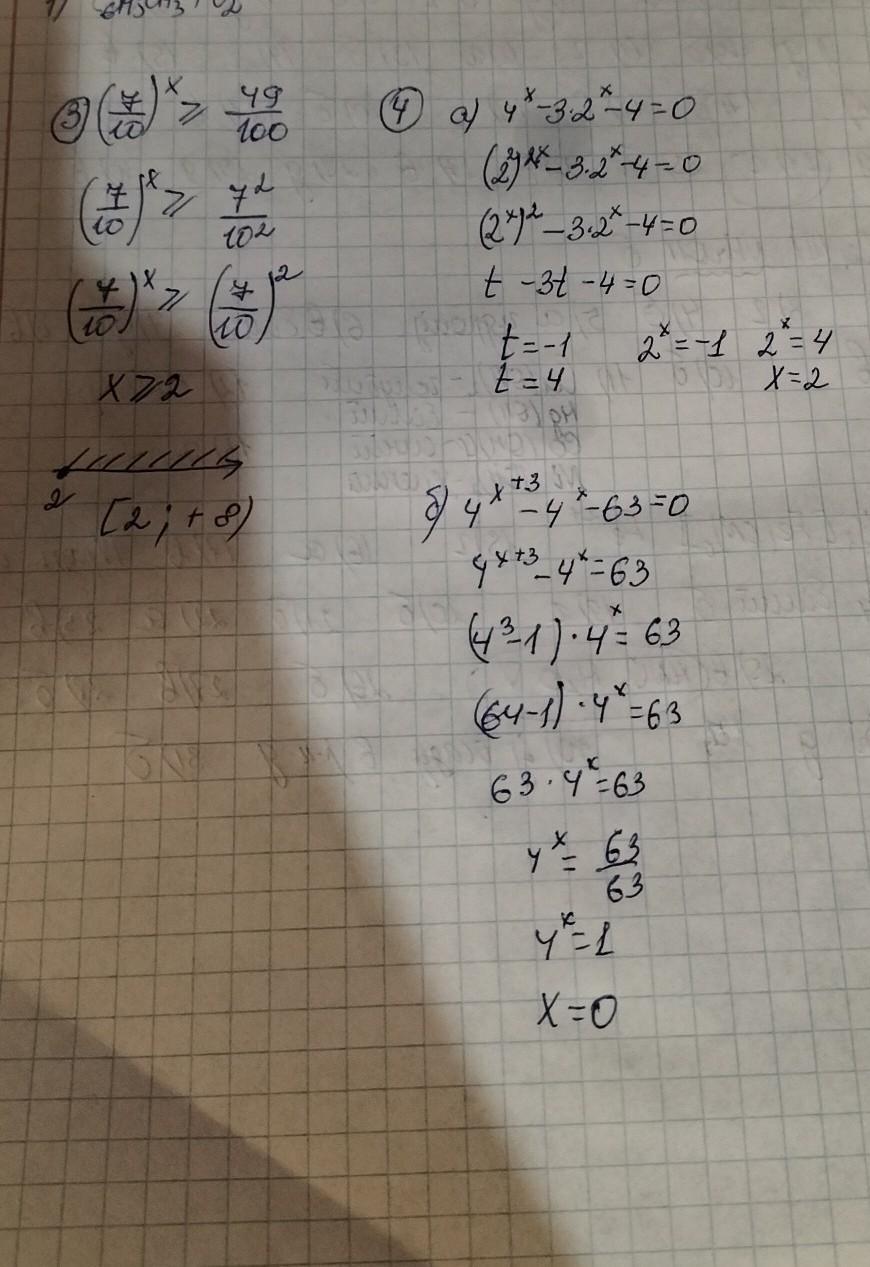 1) CH3CH3 + O2
③ (7/10)^x ≥ 49/100
(7/10)^x ≥ 7^2/10^2
(7/10)^x ≥ (7/10)^2
x ≥ 2
2
[2; +8)
④ а) 4^x - 3·2^x - 4 = 0
(2)^2x - 3·2^x - 4 = 0
(2^x)^2 - 3·2^x - 4 = 0
t - 3t - 4 = 0
t = -1 2^x = -1 2^x = 4
t = 4 x = 2
б) 4^x+3 - 4^x - 63 = 0
4^x+3 - 4^x = 63
(4^3 - 1) · 4^x = 63
(64 - 1) · 4^x = 63
63 · 4^x = 63
4^x = 63/63
4^x = 1
x = 0